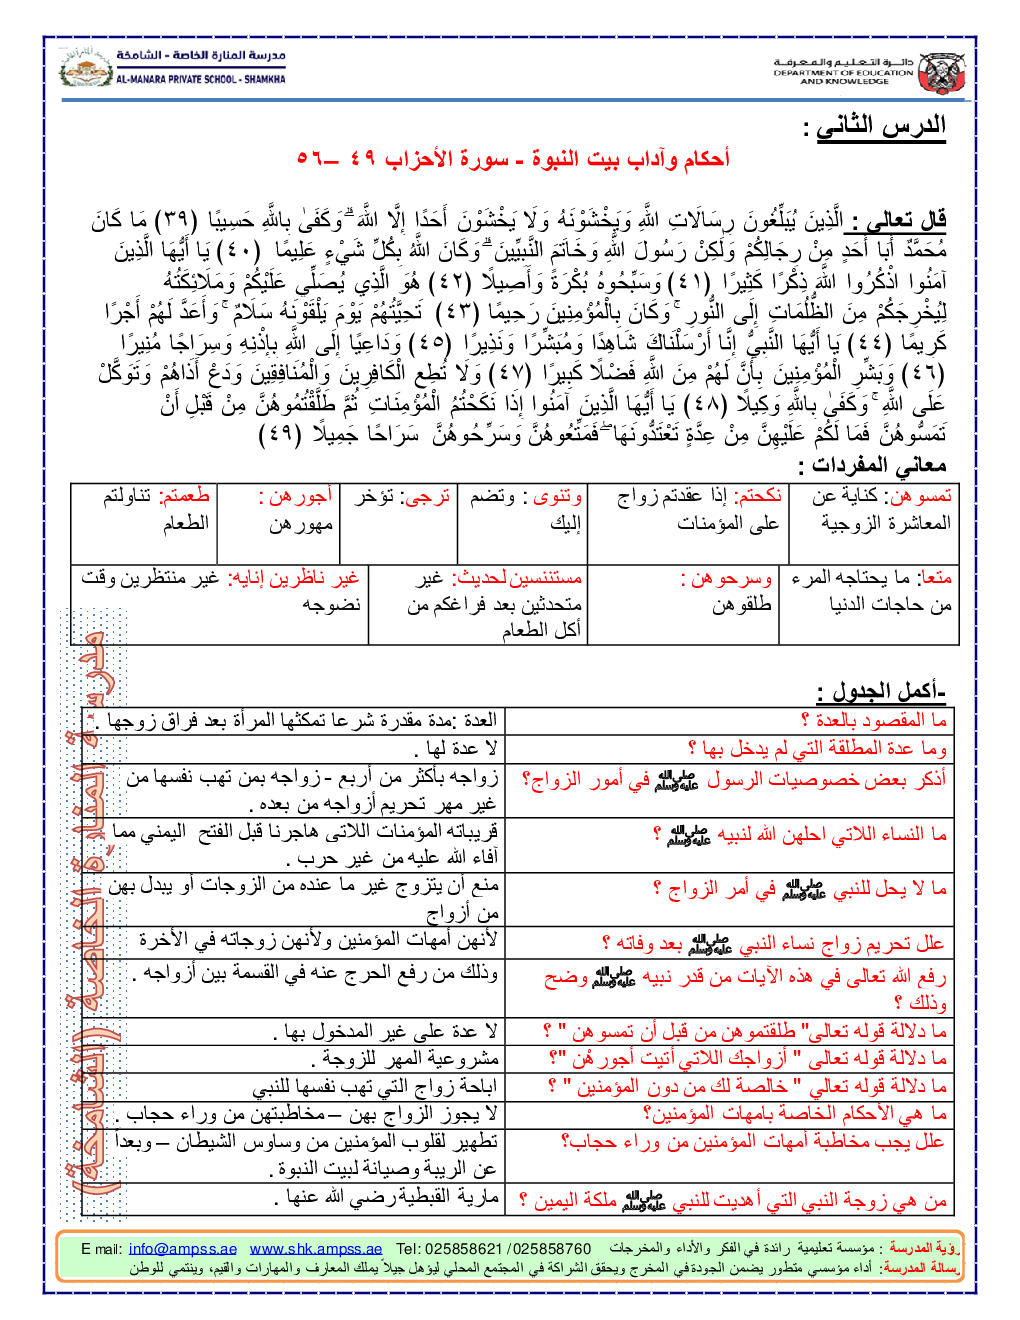 مدرسة المنارة الخاصة - الشامخة
AL-MANARA PRIVATE SCHOOL - SHAMKHA
دائرة التعليم والمعرفة
DEPARTMENT OF EDUCATION
AND KNOWLEDGE
الدرس الثاني :
أحكام وآداب بيت النبوة - سورة الأحزاب ٤٩ –٥٦
قال تعالى : الَّذِينَ يُبَلِّغُونَ رِسَالَاتِ اللَّهِ وَيَخْشَوْنَهُ وَلَا يَخْشَوْنَ أَحَدًا إِلَّا اللَّهَ ۗ وَكَفَىٰ بِاللَّهِ حَسِيبًا (٣٩) مَا كَانَ
مُحَمَّدٌ أَبَا أَحَدٍ مِنْ رِجَالِكُمْ وَلَكِنْ رَسُولَ اللَّهِ وَخَاتَمَ النَّبِيِّينَ ۗ وَكَانَ اللَّهُ بِكُلِّ شَيْءٍ عَلِيمًا (٤٠) يَا أَيُّهَا الَّذِينَ
آمَنُوا اذْكُرُوا اللَّهَ ذِكْرًا كَثِيرًا (٤١) وَسَبِّحُوهُ بُكْرَةً وَأَصِيلًا (٤٢) هُوَ الَّذِي يُصَلِّي عَلَيْكُمْ وَمَلَائِكَتُهُ
لِيُخْرِجَكُمْ مِنَ الظُّلُمَاتِ إِلَى النُّورِ ۚ وَكَانَ بِالْمُؤْمِنِينَ رَحِيمًا (٤٣) تَحِيَّتُهُمْ يَوْمَ يَلْقَوْنَهُ سَلَامٌ ۚ وَأَعَدَّ لَهُمْ أَجْرًا
كَرِيمًا (٤٤) يَا أَيُّهَا النَّبِيُّ إِنَّا أَرْسَلْنَاكَ شَاهِدًا وَمُبَشِّرًا وَنَذِيرًا (٤٥) وَدَاعِيًا إِلَى اللَّهِ بِإِذْنِهِ وَسِرَاجًا مُنِيرًا
(٤٦) وَبَشِّرِ الْمُؤْمِنِينَ بِأَنَّ لَهُمْ مِنَ اللَّهِ فَضْلًا كَبِيرًا (٤٧) وَلَا تُطِعِ الْكَافِرِينَ وَالْمُنَافِقِينَ وَدَعْ أَذَاهُمْ وَتَوَكَّلْ
عَلَى اللَّهِ ۚ وَكَفَىٰ بِاللَّهِ وَكِيلًا (٤٨) يَا أَيُّهَا الَّذِينَ آمَنُوا إِذَا نَكَحْتُمُ الْمُؤْمِنَاتِ ثُمَّ طَلَّقْتُمُوهُنَّ مِنْ قَبْلِ أَنْ
تَمَسُّوهُنَّ فَمَا لَكُمْ عَلَيْهِنَّ مِنْ عِدَّةٍ تَعْتَدُّونَهَا ۖ فَمَتِّعُوهُنَّ وَسَرِّحُوهُنَّ سَرَاحًا جَمِيلًا (٤٩)
معاني المفردات :
تمسوهن: كناية عن
المعاشرة الزوجية
نكحتم: إذا عقدتم زواج
على المؤمنات
وتنوى : وتضم
إليك
ترجى: تؤخر
أجورهن :
مهورهن
طعمتم: تناولتم
الطعام
متعا: ما يحتاجه المرء
من حاجات الدنيا
وسرحوهن :
طلقوهن
مستننسين لحديث: غير
متحدثين بعد فراغكم من
أكل الطعام
غير ناظرين إنايه: غير منتظرين وقت
نضوجه
-أكمل الجدول :
ما المقصود بالعدة ؟
العدة :مدة مقدرة شرعا تمكثها المرأة بعد فراق زوجها .
وما عدة المطلقة التي لم يدخل بها ؟
لا عدة لها .
أذكر بعض خصوصيات الرسول ﷺ في أمور الزواج؟
زواجه بأكثر من أربع - زواجه بمن تهب نفسها من
غير مهر تحريم أزواجه من بعده .
ما النساء اللاتي احلهن الله لنبيه ﷺ ؟
قريباته المؤمنات اللاتى هاجرنا قبل الفتح اليمني مما
آفاء الله عليه من غير حرب .
ما لا يحل للنبي ﷺ في أمر الزواج ؟
منع أن يتزوج غير ما عنده من الزوجات أو يبدل بهن
من أزواج
علل تحريم زواج نساء النبي ﷺ بعد وفاته ؟
لأنهن أمهات المؤمنين ولأنهن زوجاته في الأخرة
رفع الله تعالى في هذه الآيات من قدر نبيه ﷺ وضح
وذلك ؟
وذلك من رفع الحرج عنه في القسمة بين أزواجه .
ما دلالة قوله تعالى" طلقتموهن من قبل أن تمسوهن " ؟
لا عدة على غير المدخول بها .
ما دلالة قوله تعالى " أزواجك اللاتي أتيت أجورهُن "؟
مشروعية المهر للزوجة .
ما دلالة قوله تعالي " خالصة لك من دون المؤمنين " ؟
اباحة زواج التي تهب نفسها للنبي
ما هي الأحكام الخاصة بامهات المؤمنين؟
لا يجوز الزواج بهن – مخاطبتهن من وراء حجاب .
علل يجب مخاطبة أمهات المؤمنين من وراء حجاب؟
تطهير لقلوب المؤمنين من وساوس الشيطان – وبعداً
عن الريبة وصيانة لبيت النبوة .
من هي زوجة النبي التي أهديت للنبي ﷺ ملكة اليمين ؟
مارية القبطية رضي الله عنها .
مدرسة المنارة الخاصة (الشامخة)
رؤية المدرسة : مؤسسة تعليمية رائدة في الفكر والأداء والمخرجات Tel: 025858621 /025858760 www.shk.ampss.ae E mail: info@ampss.ae
رسالة المدرسة: أداء مؤسسي متطور يضمن الجودة في المخرج ويحقق الشراكة في المجتمع المحلي ليؤهل جيلاً يملك المعارف والمهارات والقيم، وينتمي للوطن